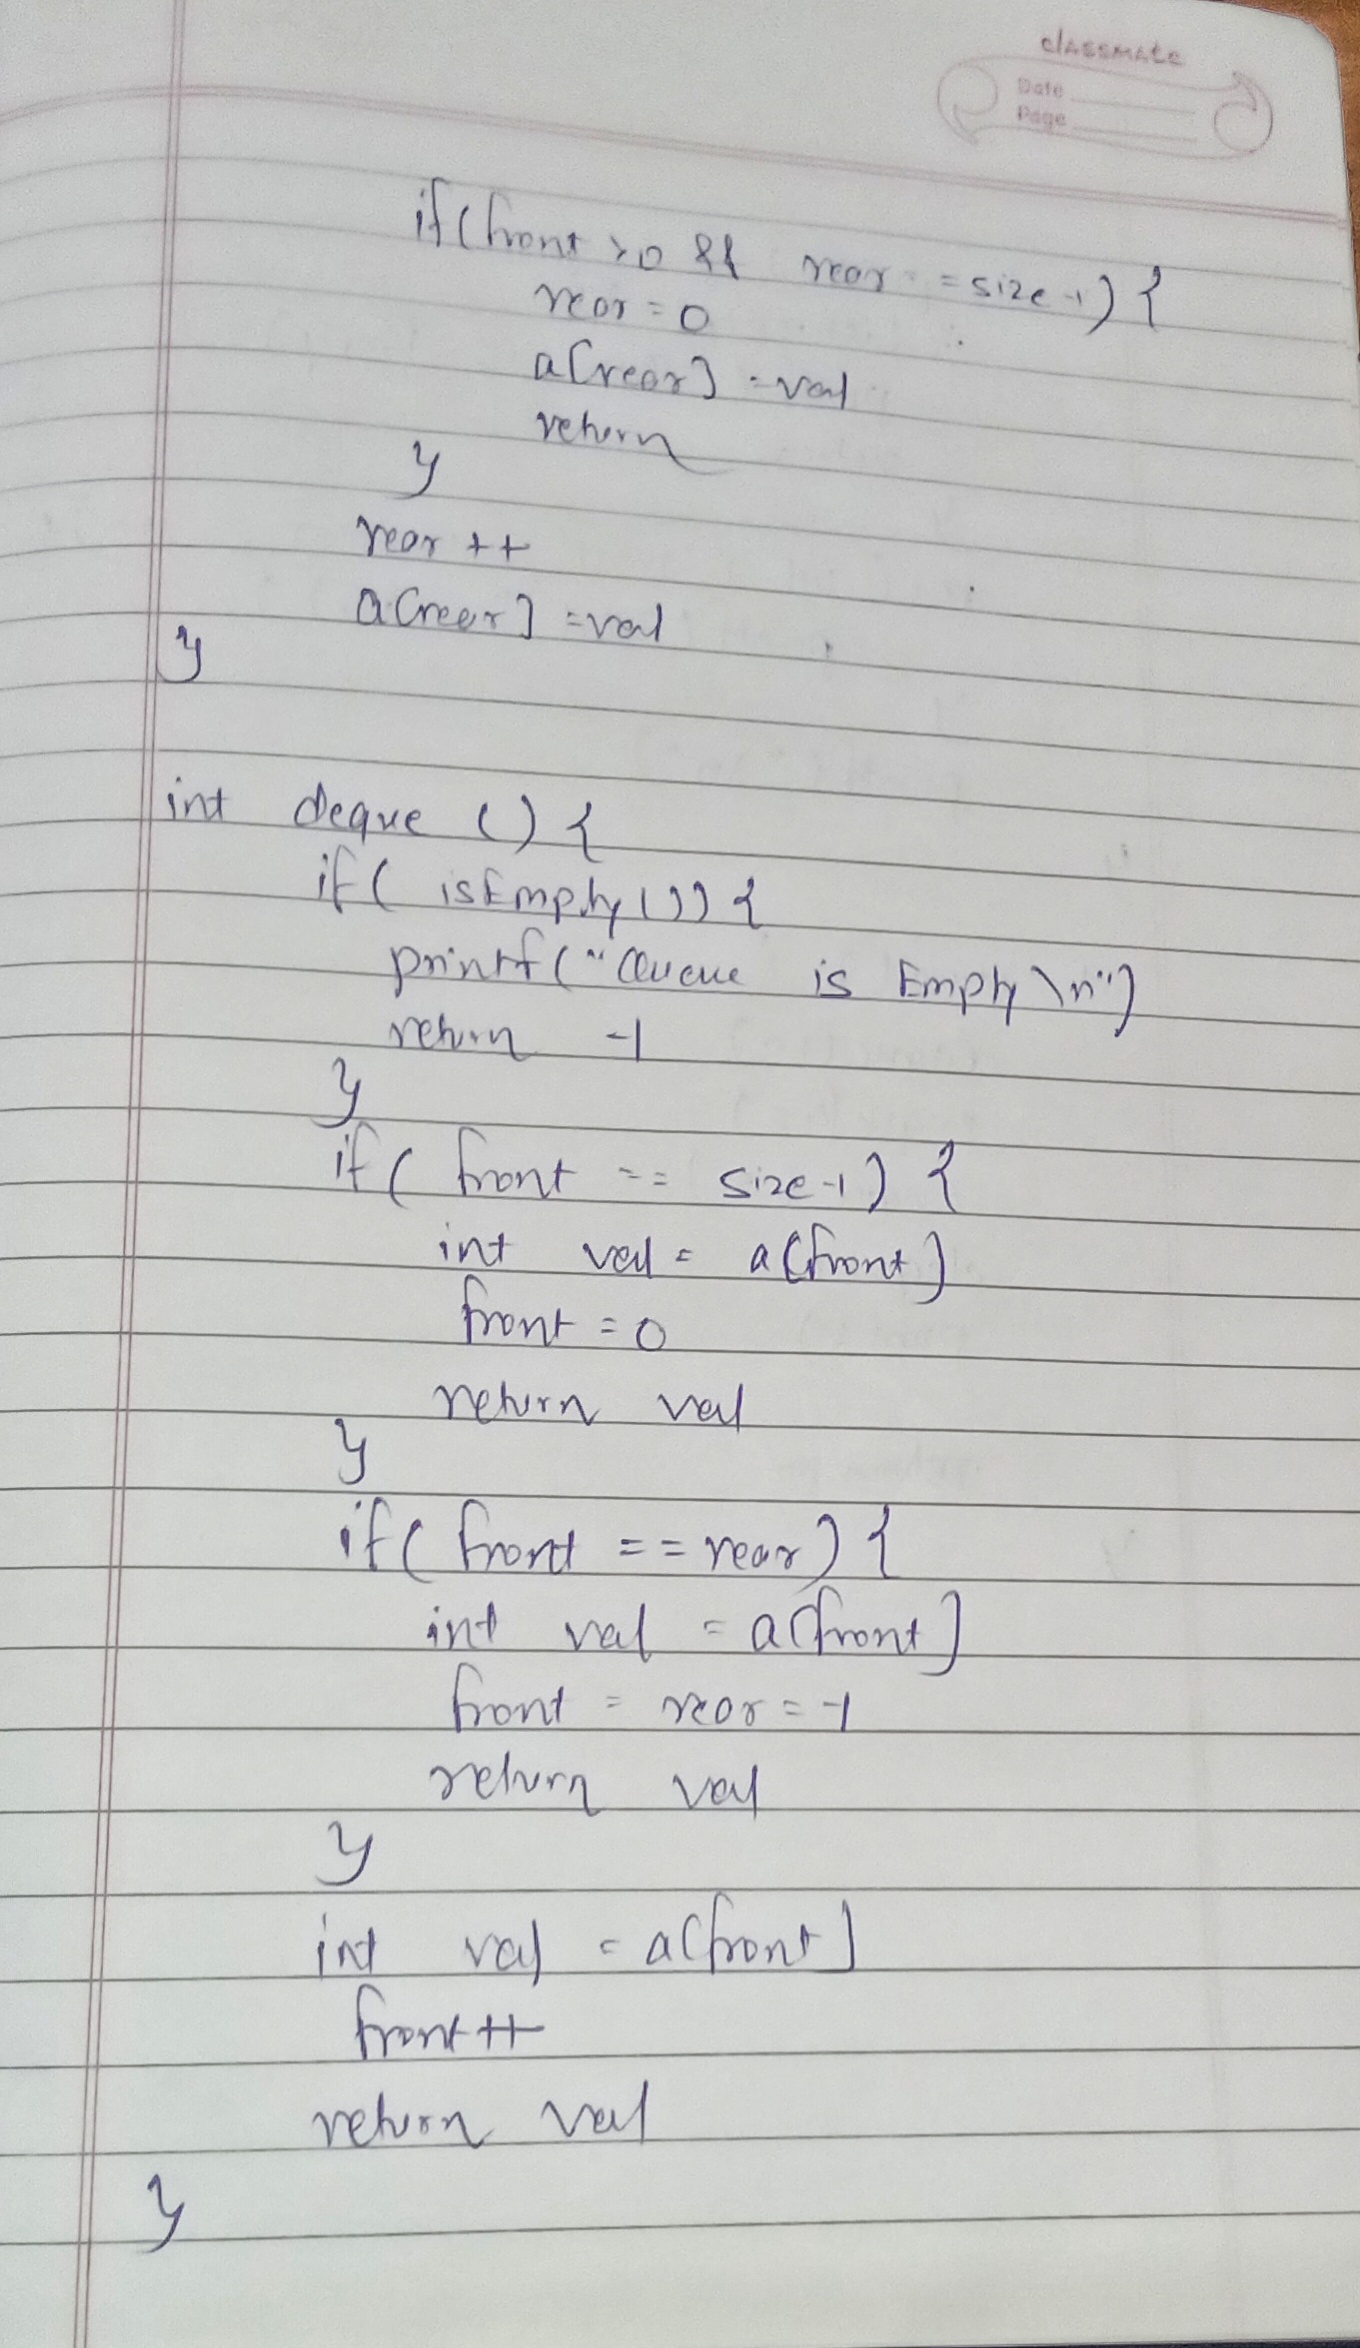 classmate
Date
Page
if(front >0 && rear == size-1) {
rear=0
a[rear] =val
return
}
rear ++
a[reer] =val
}
int deque () {
if( isEmpty()) {
printf("Queue is Empty \n")
return -1
}
if( front == size-1) {
int val = a[front]
front =0
return val
}
if( front == rear) {
int val = a[front]
front = rear = -1
return val
}
int val = a[front]
front++
return val
}